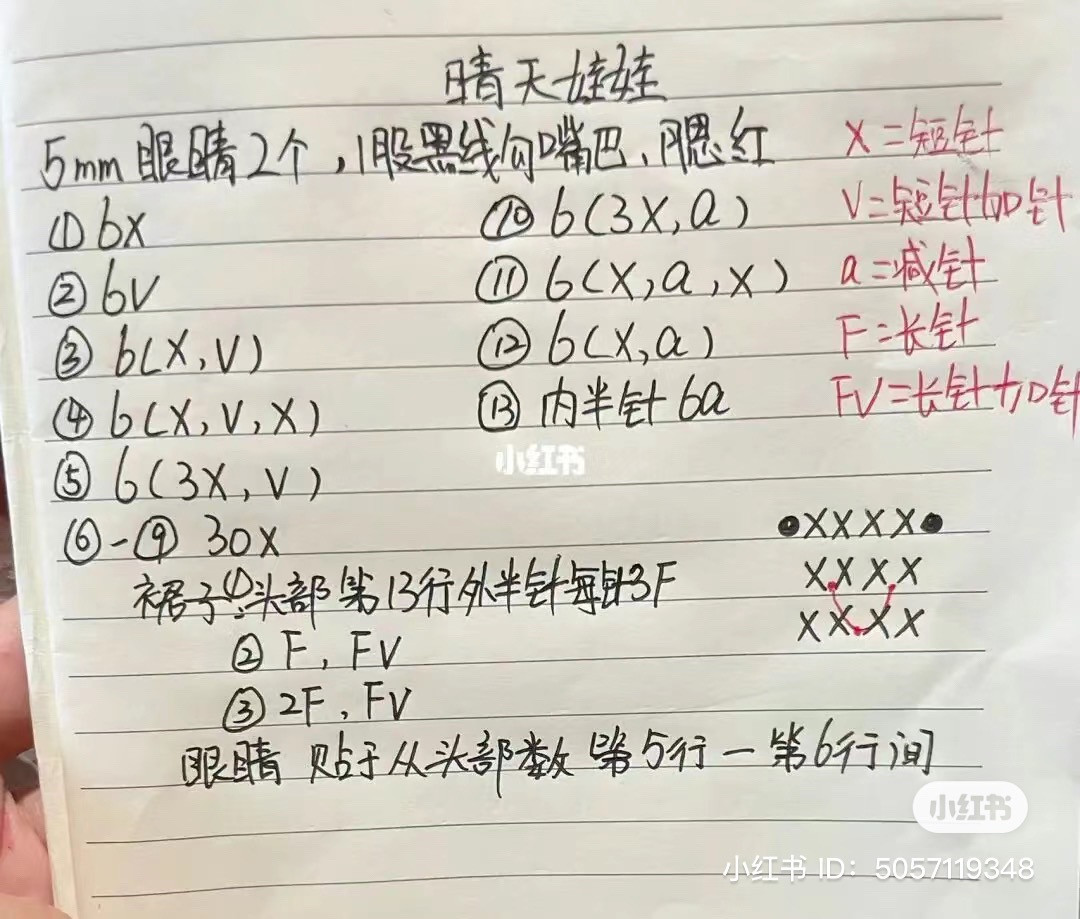 晴天娃娃
5mm 眼睛2个，1股黑线勾嘴巴、腮红
X=短针
V=短针加针
a=减针
F=长针
FV=长针加针
① 6X
② 6V
③ 6(X,V)
④ 6(X,V,X)
⑤ 6(3X,V)
⑥-⑨ 30X
⑩ 6(3X,a)
⑪ 6(X,a,X)
⑫ 6(X,a)
⑬ 内半针 6a
小红书
●XXXX●
XXXX
XXXX
裙子①:头部第13行外半针每针3F
② F, FV
③ 2F, FV
眼睛 贴于从头部数 第5行-第6行间
小红书
小红书 ID: 5057119348